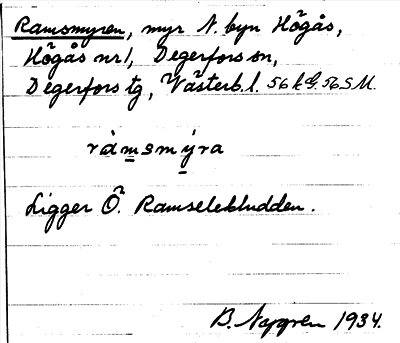 Ramsmyren, myr N. byn Högås,
Högås nr 1, Degerfors sn,
Degerfors tg, Västerb. l. 56 k G. 56 S M.
ràmsmýra
Ligger Ö. Ramseleknudden.
B. Nygren 1934.